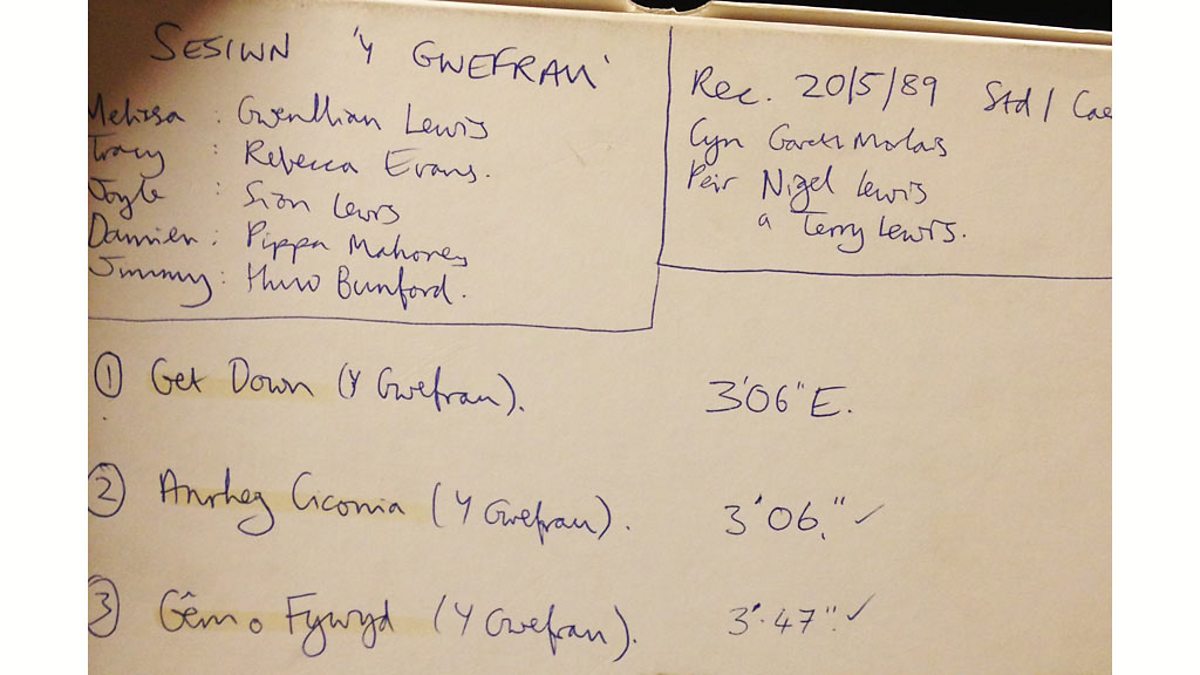 SESIWN 'Y GWEFRAU'
Melissa : Gwenllian Lewis
Tracy : Rebecca Evans.
: Siôn Lewis
Damien : Pippa Mahoney
Jimmy : Huw Bunford.
Rec. 20/5/89 Std / Cae
Cyn Gareth Morlais
Peir Nigel Lewis
a Terry Lewis.
① Get Down (Y Gwefrau). 3'06" E.
② Anrheg Ciconia (Y Gwefrau). 3'06." ✓
③ Gêm o Fywyd (Y Gwefrau). 3'.47". ✓